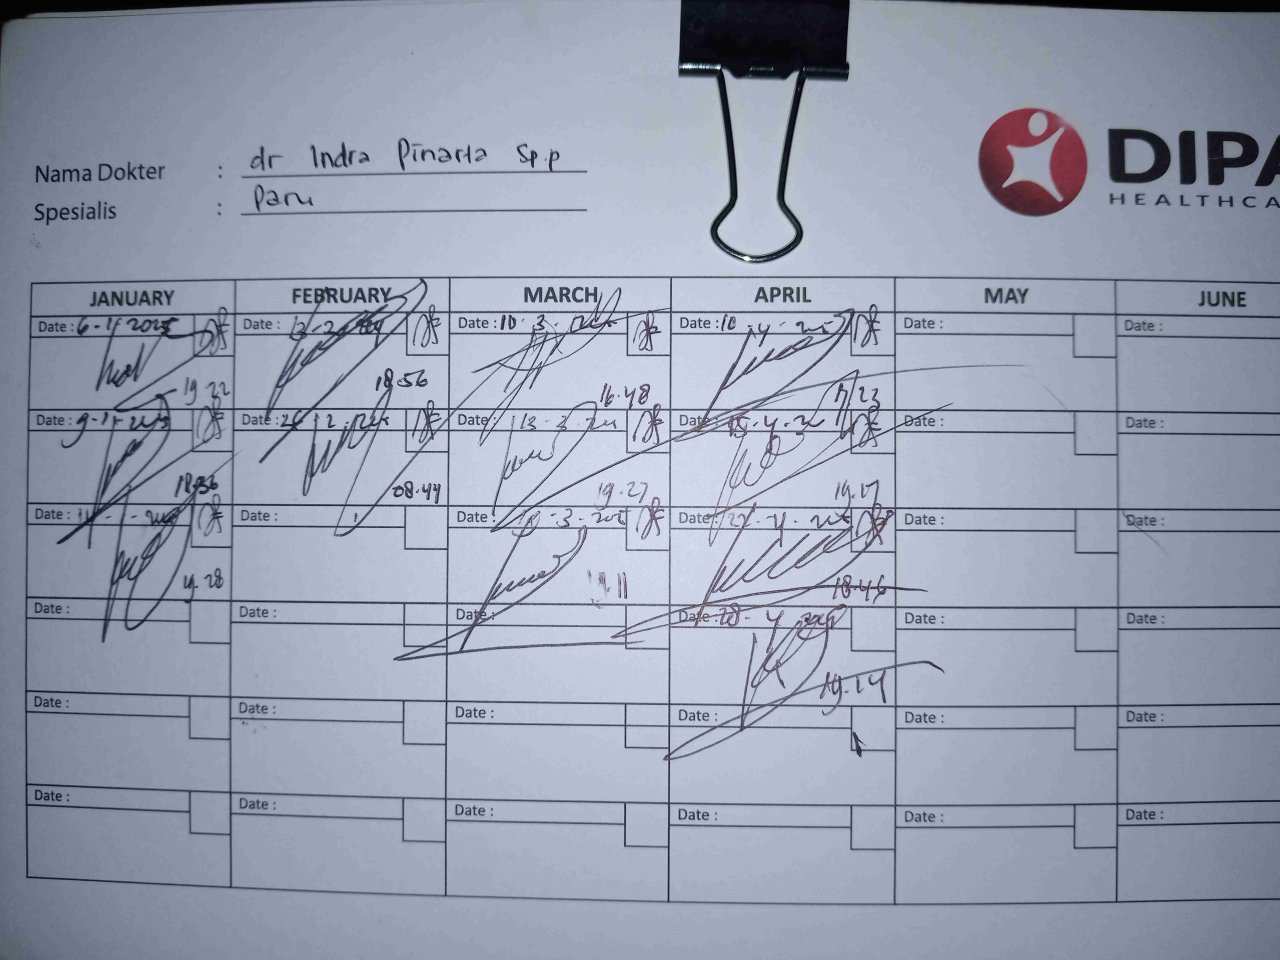 Nama Dokter : dr Indra Sp.p
Spesialis : Paru
DIPA
HEALTHCA
JANUARY FEBRUARY MARCH APRIL MAY JUNE
Date : 6-1-2025 Date : 13-2- Date : 10-3- Date : 10-4- Date : Date :
19.22 18.56 16.48 17.23
Date : 9-1- Date : 2- Date : 13-3- Date : 15-4- Date : Date :
18.36 08.44 19.27 19.17
Date : Date : Date : -3-2025 Date : 22-4- Date : Date :
19.28 19.11 18.46
Date : Date : Date : Date : 28-4-2025 Date : Date :
19.14
Date : Date : Date : Date : Date : Date :
Date : Date : Date : Date : Date : Date :